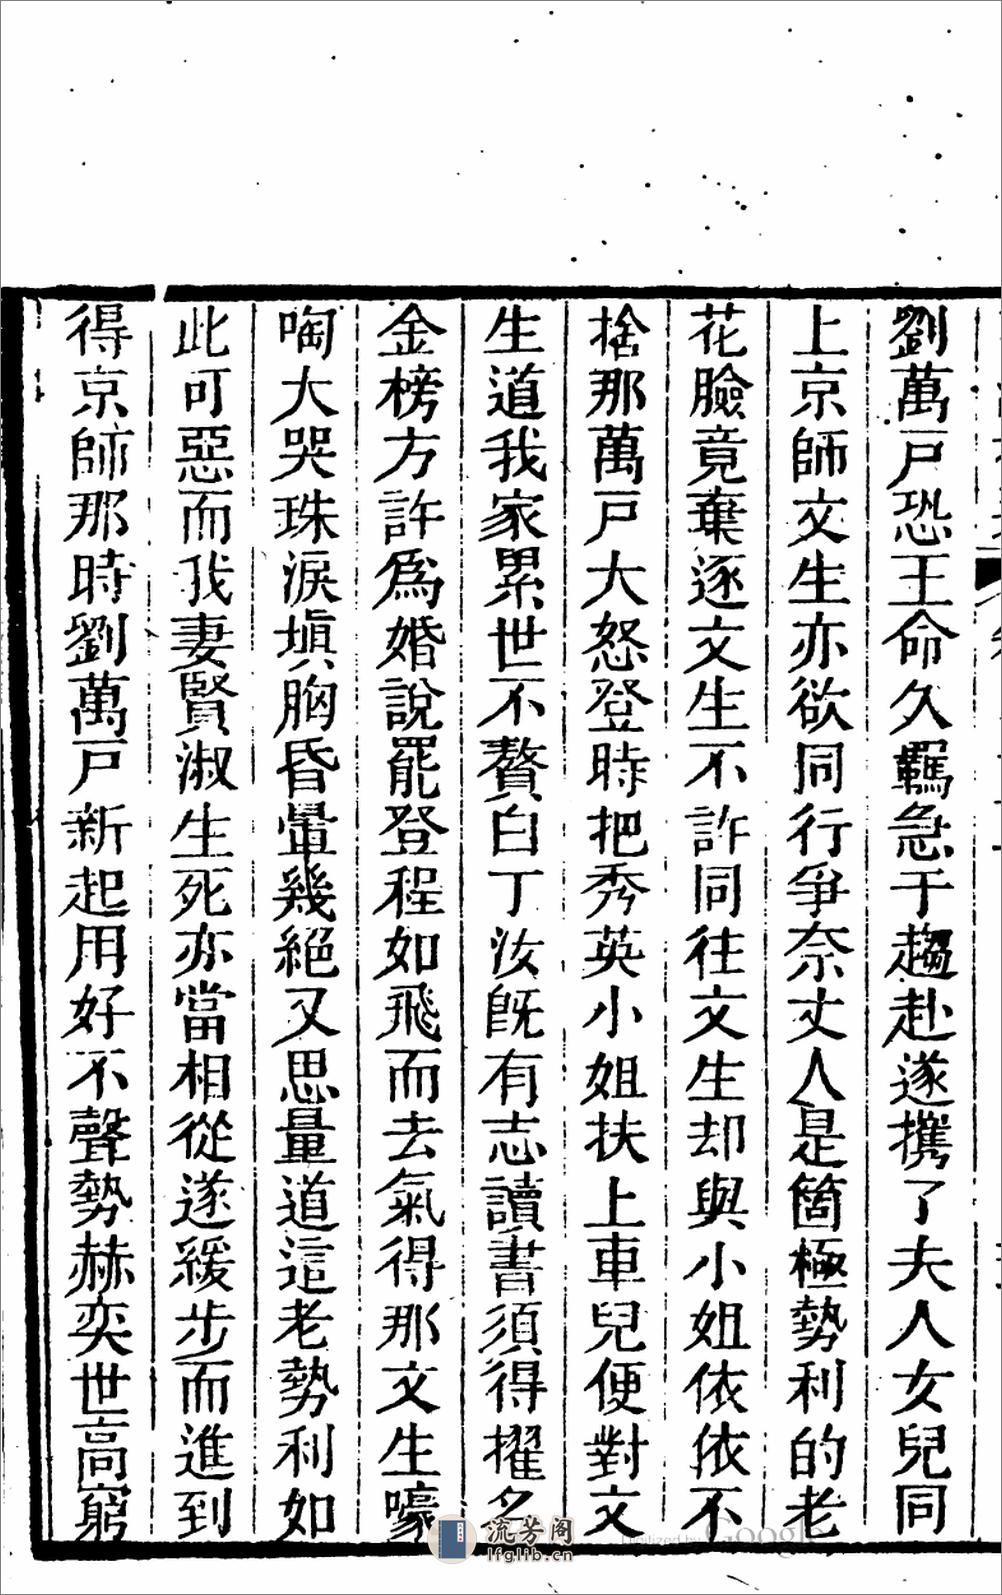 劉萬戸恐王命久羈急于趨赴遂攜了夫人女兒同
上京師文生亦欲同行爭奈丈人是箇極勢利的老
花臉竟棄逐文生不許同往文生却與小姐依依不
捨那萬戸大怒登時把秀英小姐扶上車兒便對文
生道我家累世不贅白丁汝既有志讀書須得擢名
金榜方許為婚說罷登程如飛而去氣得那文生嚎
啕大哭珠淚填胸昏暈幾絕又思量道這老勢利如
此可惡而我妻賢淑生死亦當相從遂緩步而進到
得京師那時劉萬戸新起用好不聲勢赫奕世高窮
流芳阁
lfglib.cn
Digitized by Google